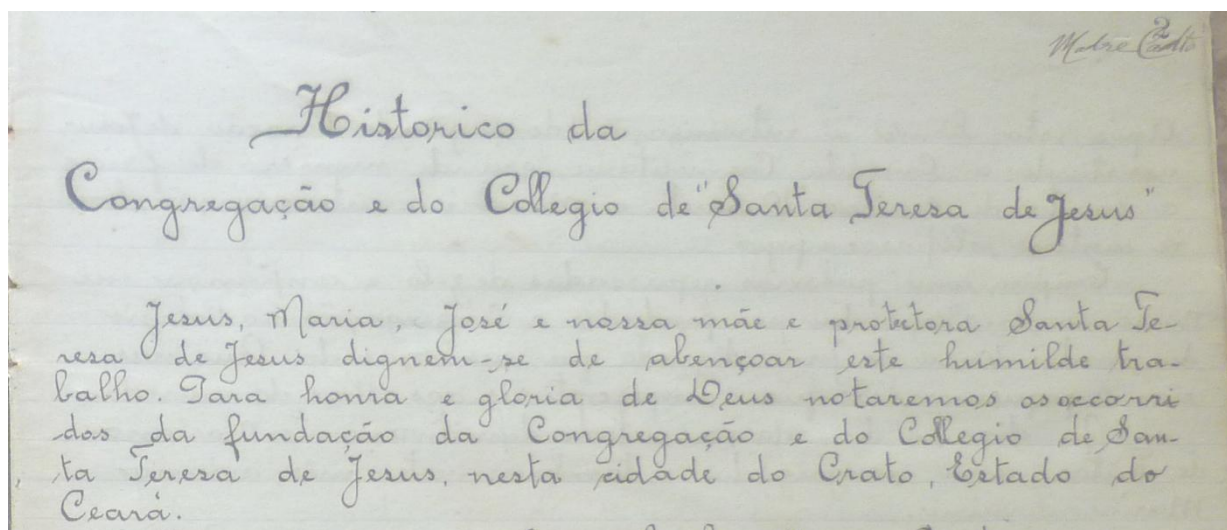 2
Madre
Historico da
Congregação e do Collegio de "Santa Teresa de Jesus"
Jesus, Maria, José e nossa mãe e protetora Santa Te-
resa de Jesus dignem-se de abençoar este humilde tra-
balho. Para honra e gloria de Deus notaremos os occorri
dos da fundação da Congregação e do Collegio de San-
ta Teresa de Jesus, nesta cidade do Crato, Estado do
Ceará.